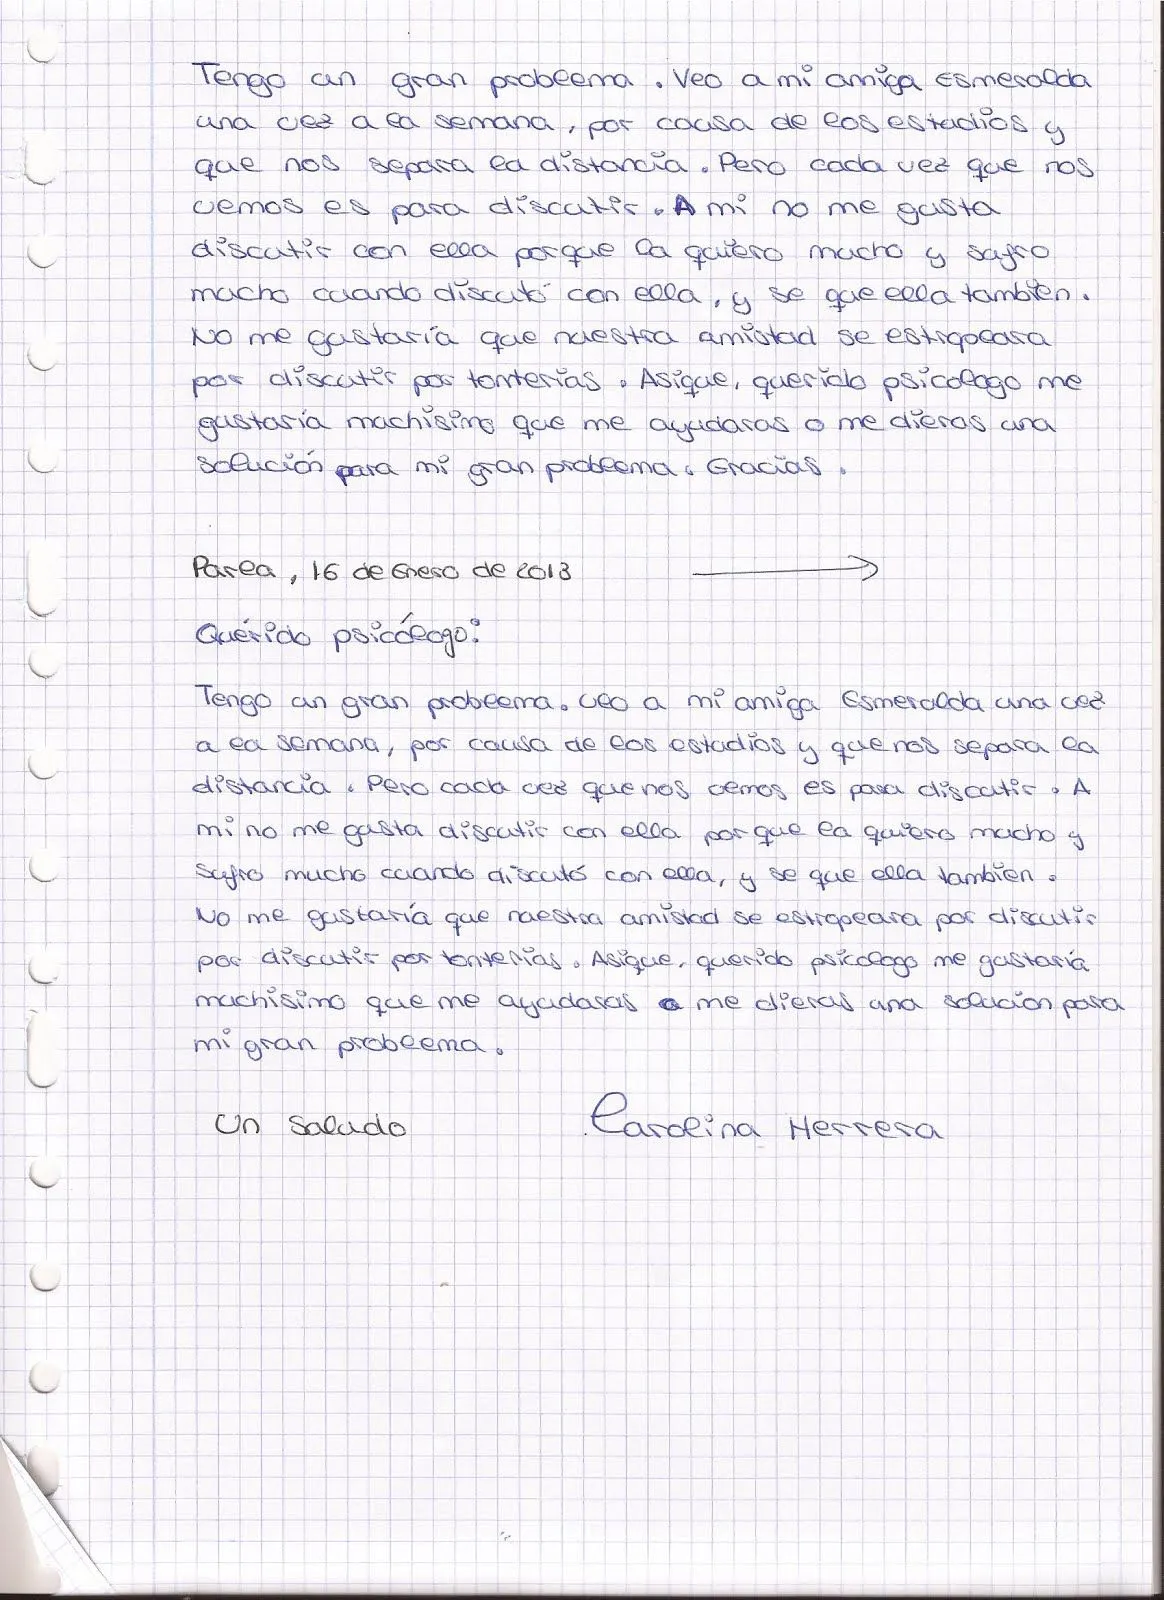 Tengo un gran problema. Veo a mi amiga Esmeralda
una vez a la semana, por causa de los estudios y
que nos separa la distancia. Pero cada vez que nos
vemos es para discutir. A mi no me gusta
discutir con ella porque la quiero mucho y sufro
mucho cuando discutó con ella, y se que ella tambien.
No me gustaría que nuestra amistad se estropeara
por discutir por tonterias. Asique, querido psicologo me
gustaría muchisimo que me ayudaras o me dieras una
solución para mi gran problema. Gracias.
Parla, 16 de Enero de 2013
Quérido psicólogo:
Tengo un gran problema. Veo a mi amiga Esmeralda una vez
a la semana, por causa de los estudios y que nos separa la
distancia. Pero cada vez que nos vemos es para discutir. A
mi no me gusta discutir con ella por que la quiero mucho y
sufro mucho cuando discutó con ella, y se que ella tambien.
No me gustaría que nuestra amistad se estropeara por discutir
por discutir por tonterias. Asique, querido psicologo me gustaría
muchisimo que me ayudaras o me dieras una solucion para
mi gran problema.
Un Saludo Carolina Herrera